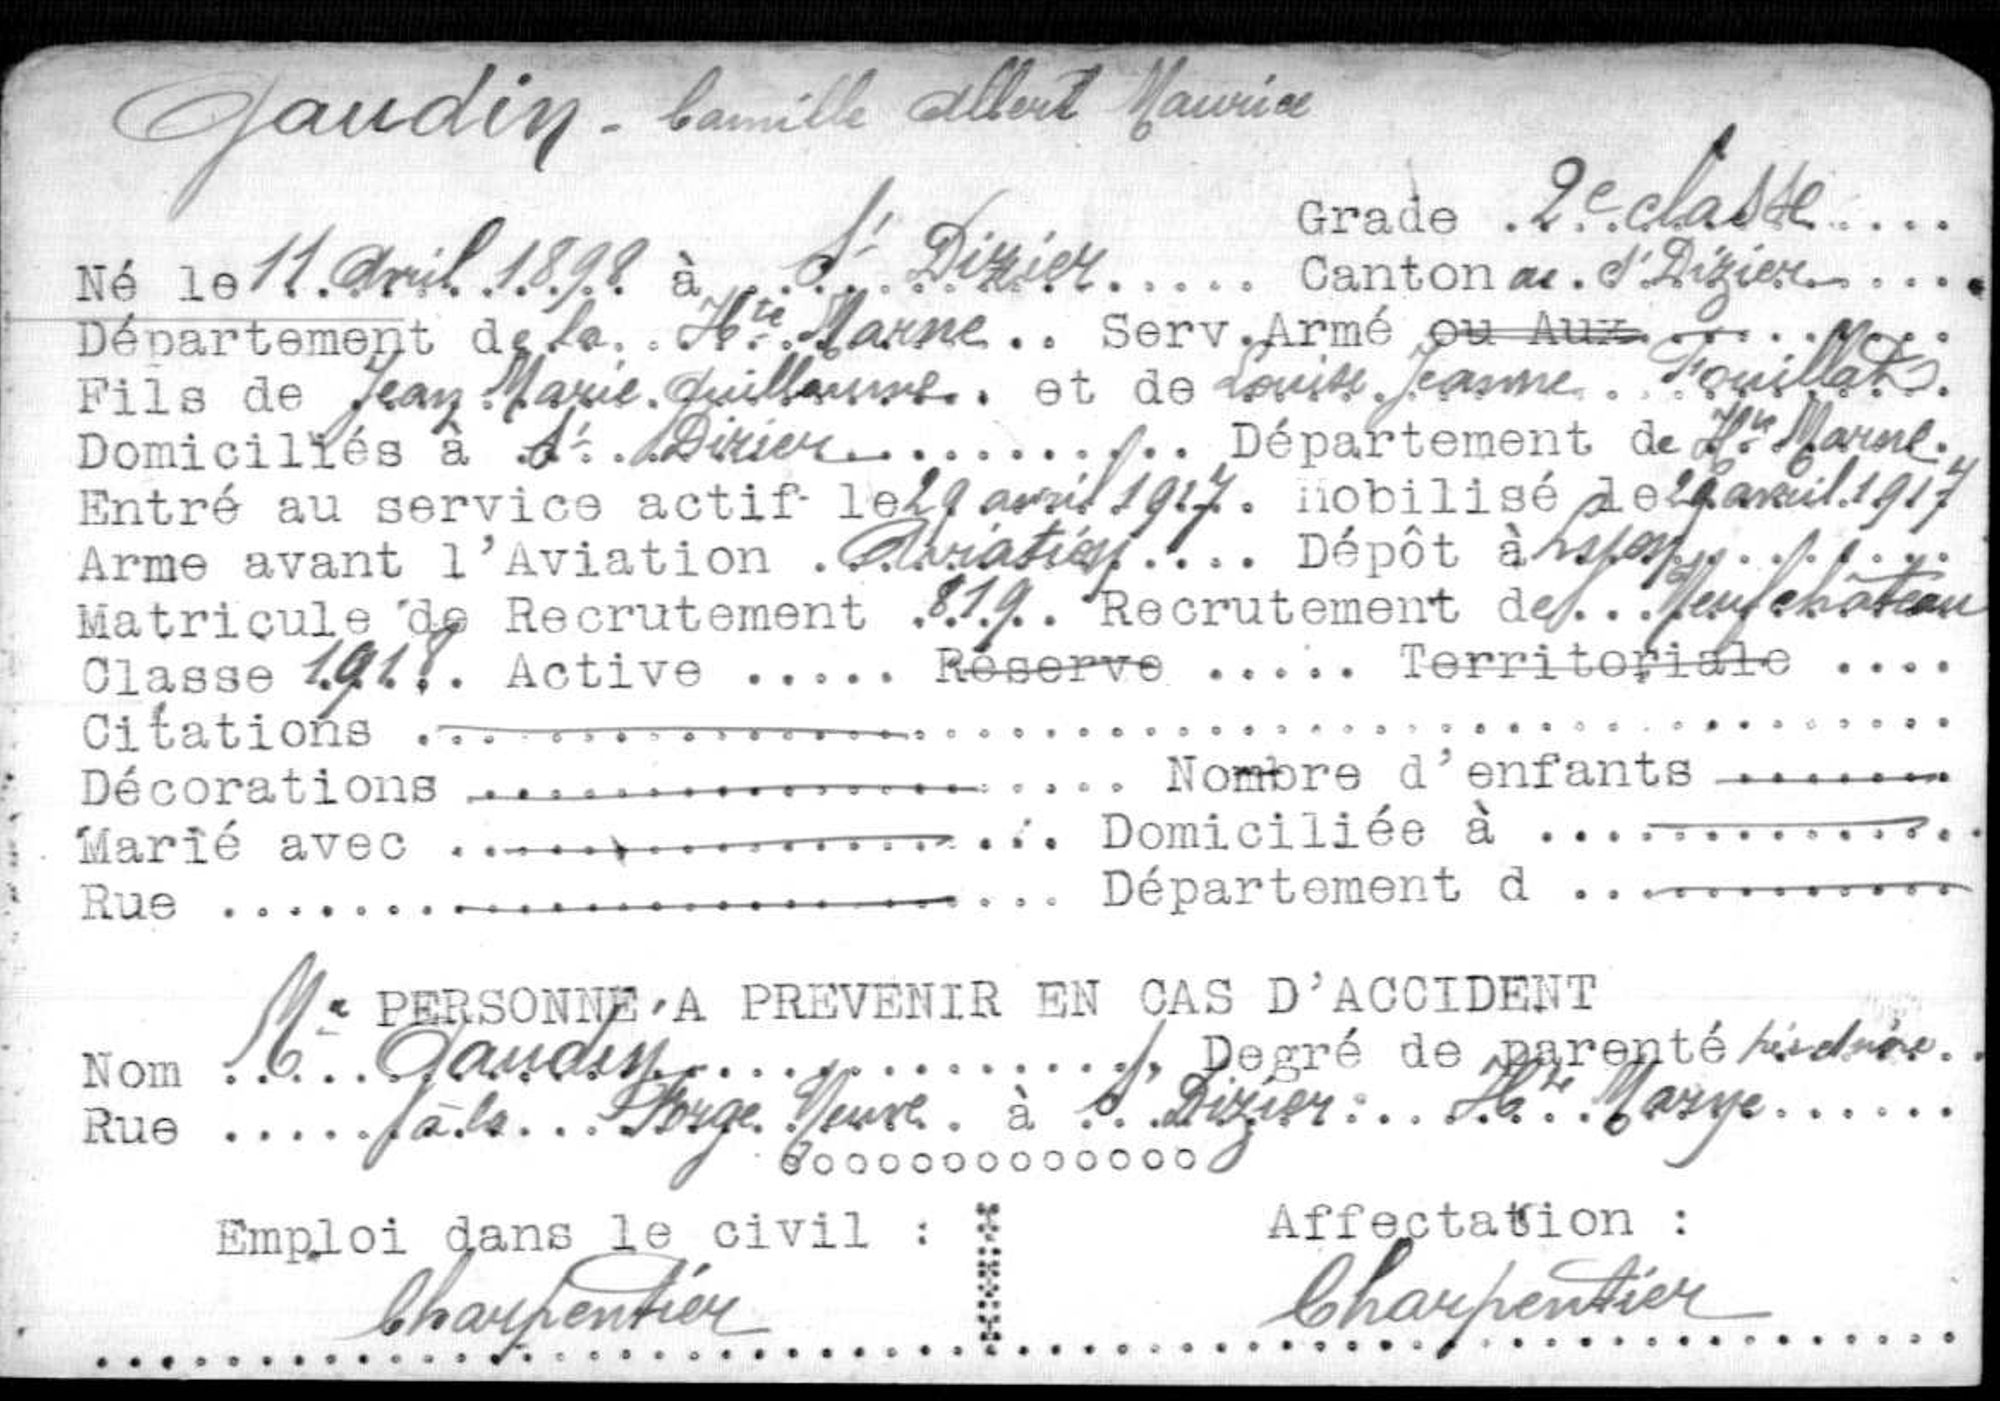 Gaudin - Camille Albert Maurice
Grade 2e classe
Né le 11 Avril 1898 à St Dizier Canton de St Dizier
Département de la Hte Marne Serv. Armé ou Aux
Fils de Jean Marie Guillaume et de Louise Jeanne Fouillat
Domiciliés à St Dizier Département de Hte Marne
Entré au service actif le 29 avril 1917. Mobilisé le 29 avril 1917
Arme avant l'Aviation Aviation Dépôt à Lyon
Matricule de Recrutement 819 Recrutement de Neufchâteau
Classe 1918. Active ..... Réserve ..... Territoriale ....
Citations
Décorations Nombre d'enfants
Marié avec Domiciliée à
Rue Département d
PERSONNE A PREVENIR EN CAS D'ACCIDENT
Nom Mr Gaudin Degré de parenté
Rue à la Forge Neuve à St Dizier Hte Marne
oooooooooooooo
Emploi dans le civil : Affectation :
Charpentier Charpentier